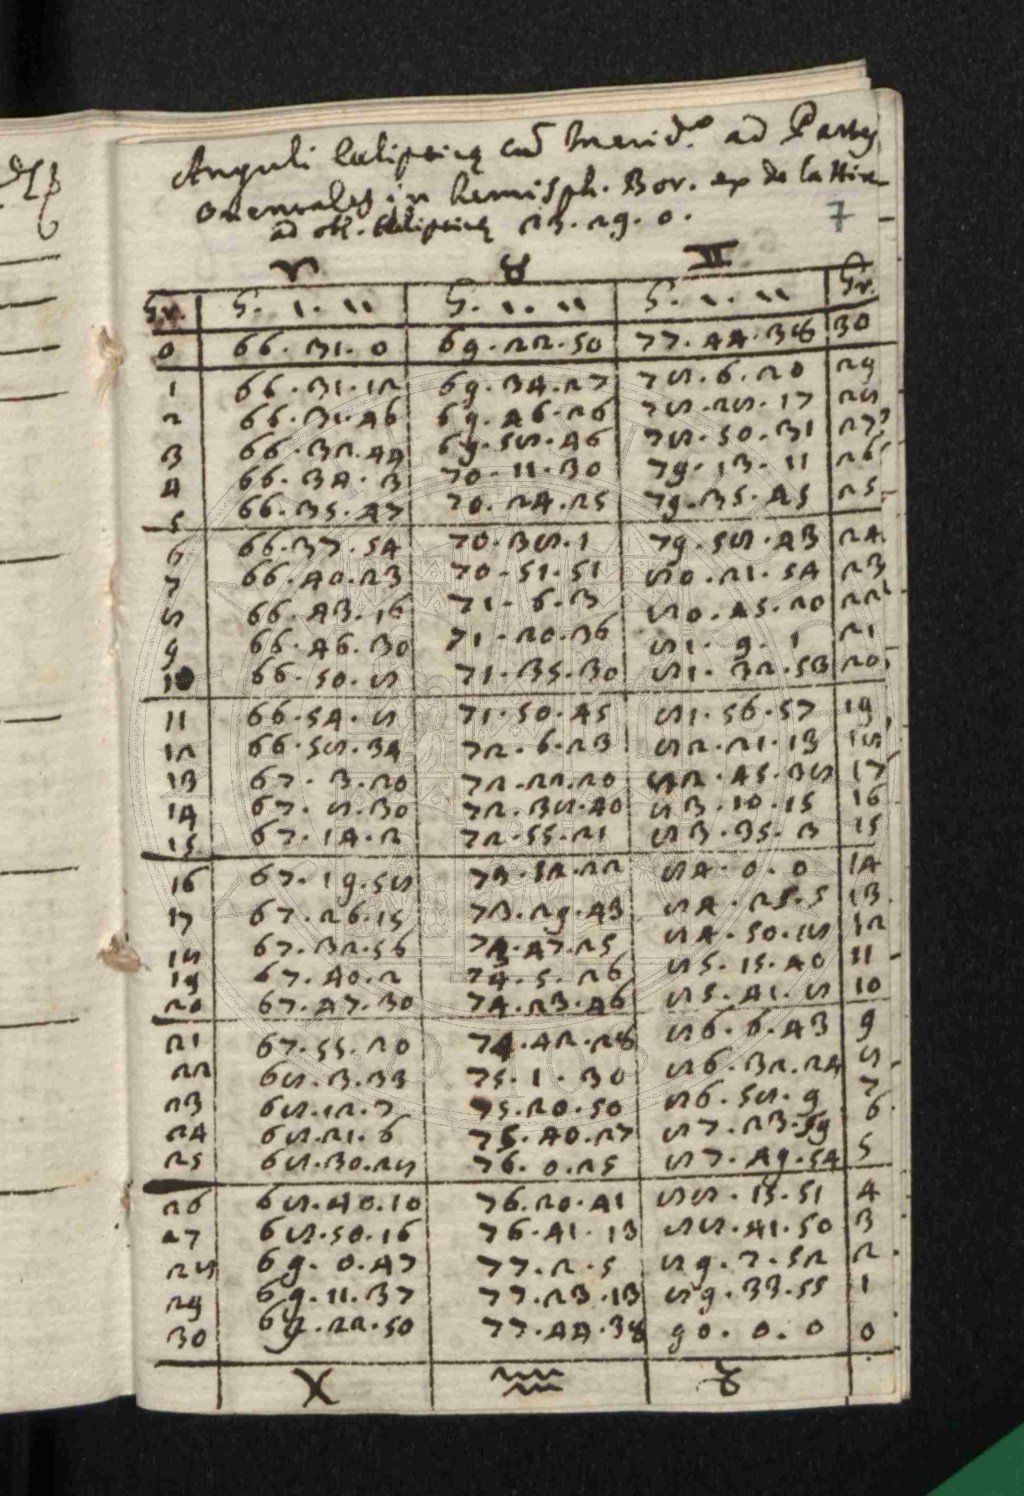 Anguli Eclipticę cū Merid.º ad Partes
Orientales in hemisph. Bor. ex de la Hire
ad obl. Eclipticę 23.29.0.
7
♈ ♉ ♊
Gr. G. I. II G. I. II G. I. II Gr.
0 66.31.0 69.22.50 77.44.38 30
1 66.31.12 69.34.27 78.6.20 29
2 66.31.46 69.46.26 78.28.17 28
3 66.32.44 69.58.46 78.50.31 27
4 66.34.3 70.11.30 79.13.11 26
5 66.35.47 70.24.25 79.35.45 25
6 66.37.54 70.38.1 79.58.43 24
7 66.40.23 70.51.51 80.21.54 23
8 66.43.16 71.6.3 80.45.20 22
9 66.46.30 71.20.36 81.9.1 21
10 66.50.8 71.35.30 81.32.53 20
11 66.54.8 71.50.45 81.56.57 19
12 66.58.34 72.6.23 82.21.13 18
13 67.3.20 72.22.20 82.45.38 17
14 67.8.30 72.38.40 83.10.15 16
15 67.14.2 72.55.21 83.35.3 15
16 67.19.58 73.12.22 84.0.0 14
17 67.26.15 73.29.43 84.25.5 13
18 67.32.56 73.47.25 84.50.18 12
19 67.40.2 74.5.26 85.15.40 11
20 67.47.30 74.23.46 85.41.8 10
21 67.55.20 74.42.28 86.6.43 9
22 68.3.33 75.1.30 86.32.24 8
23 68.12.7 75.20.50 86.58.9 7
24 68.21.6 75.40.27 87.23.59 6
25 68.30.28 76.0.25 87.49.54 5
26 68.40.10 76.20.41 88.15.51 4
27 68.50.16 76.41.13 88.41.50 3
28 69.0.47 77.2.5 89.7.52 2
29 69.11.37 77.23.13 89.33.55 1
30 69.22.50 77.44.38 90.0.0 0
♓ ♒ ♑